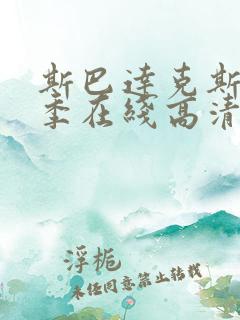 斯巴达克斯
季在线高清
浮栀
未经同意禁止转载